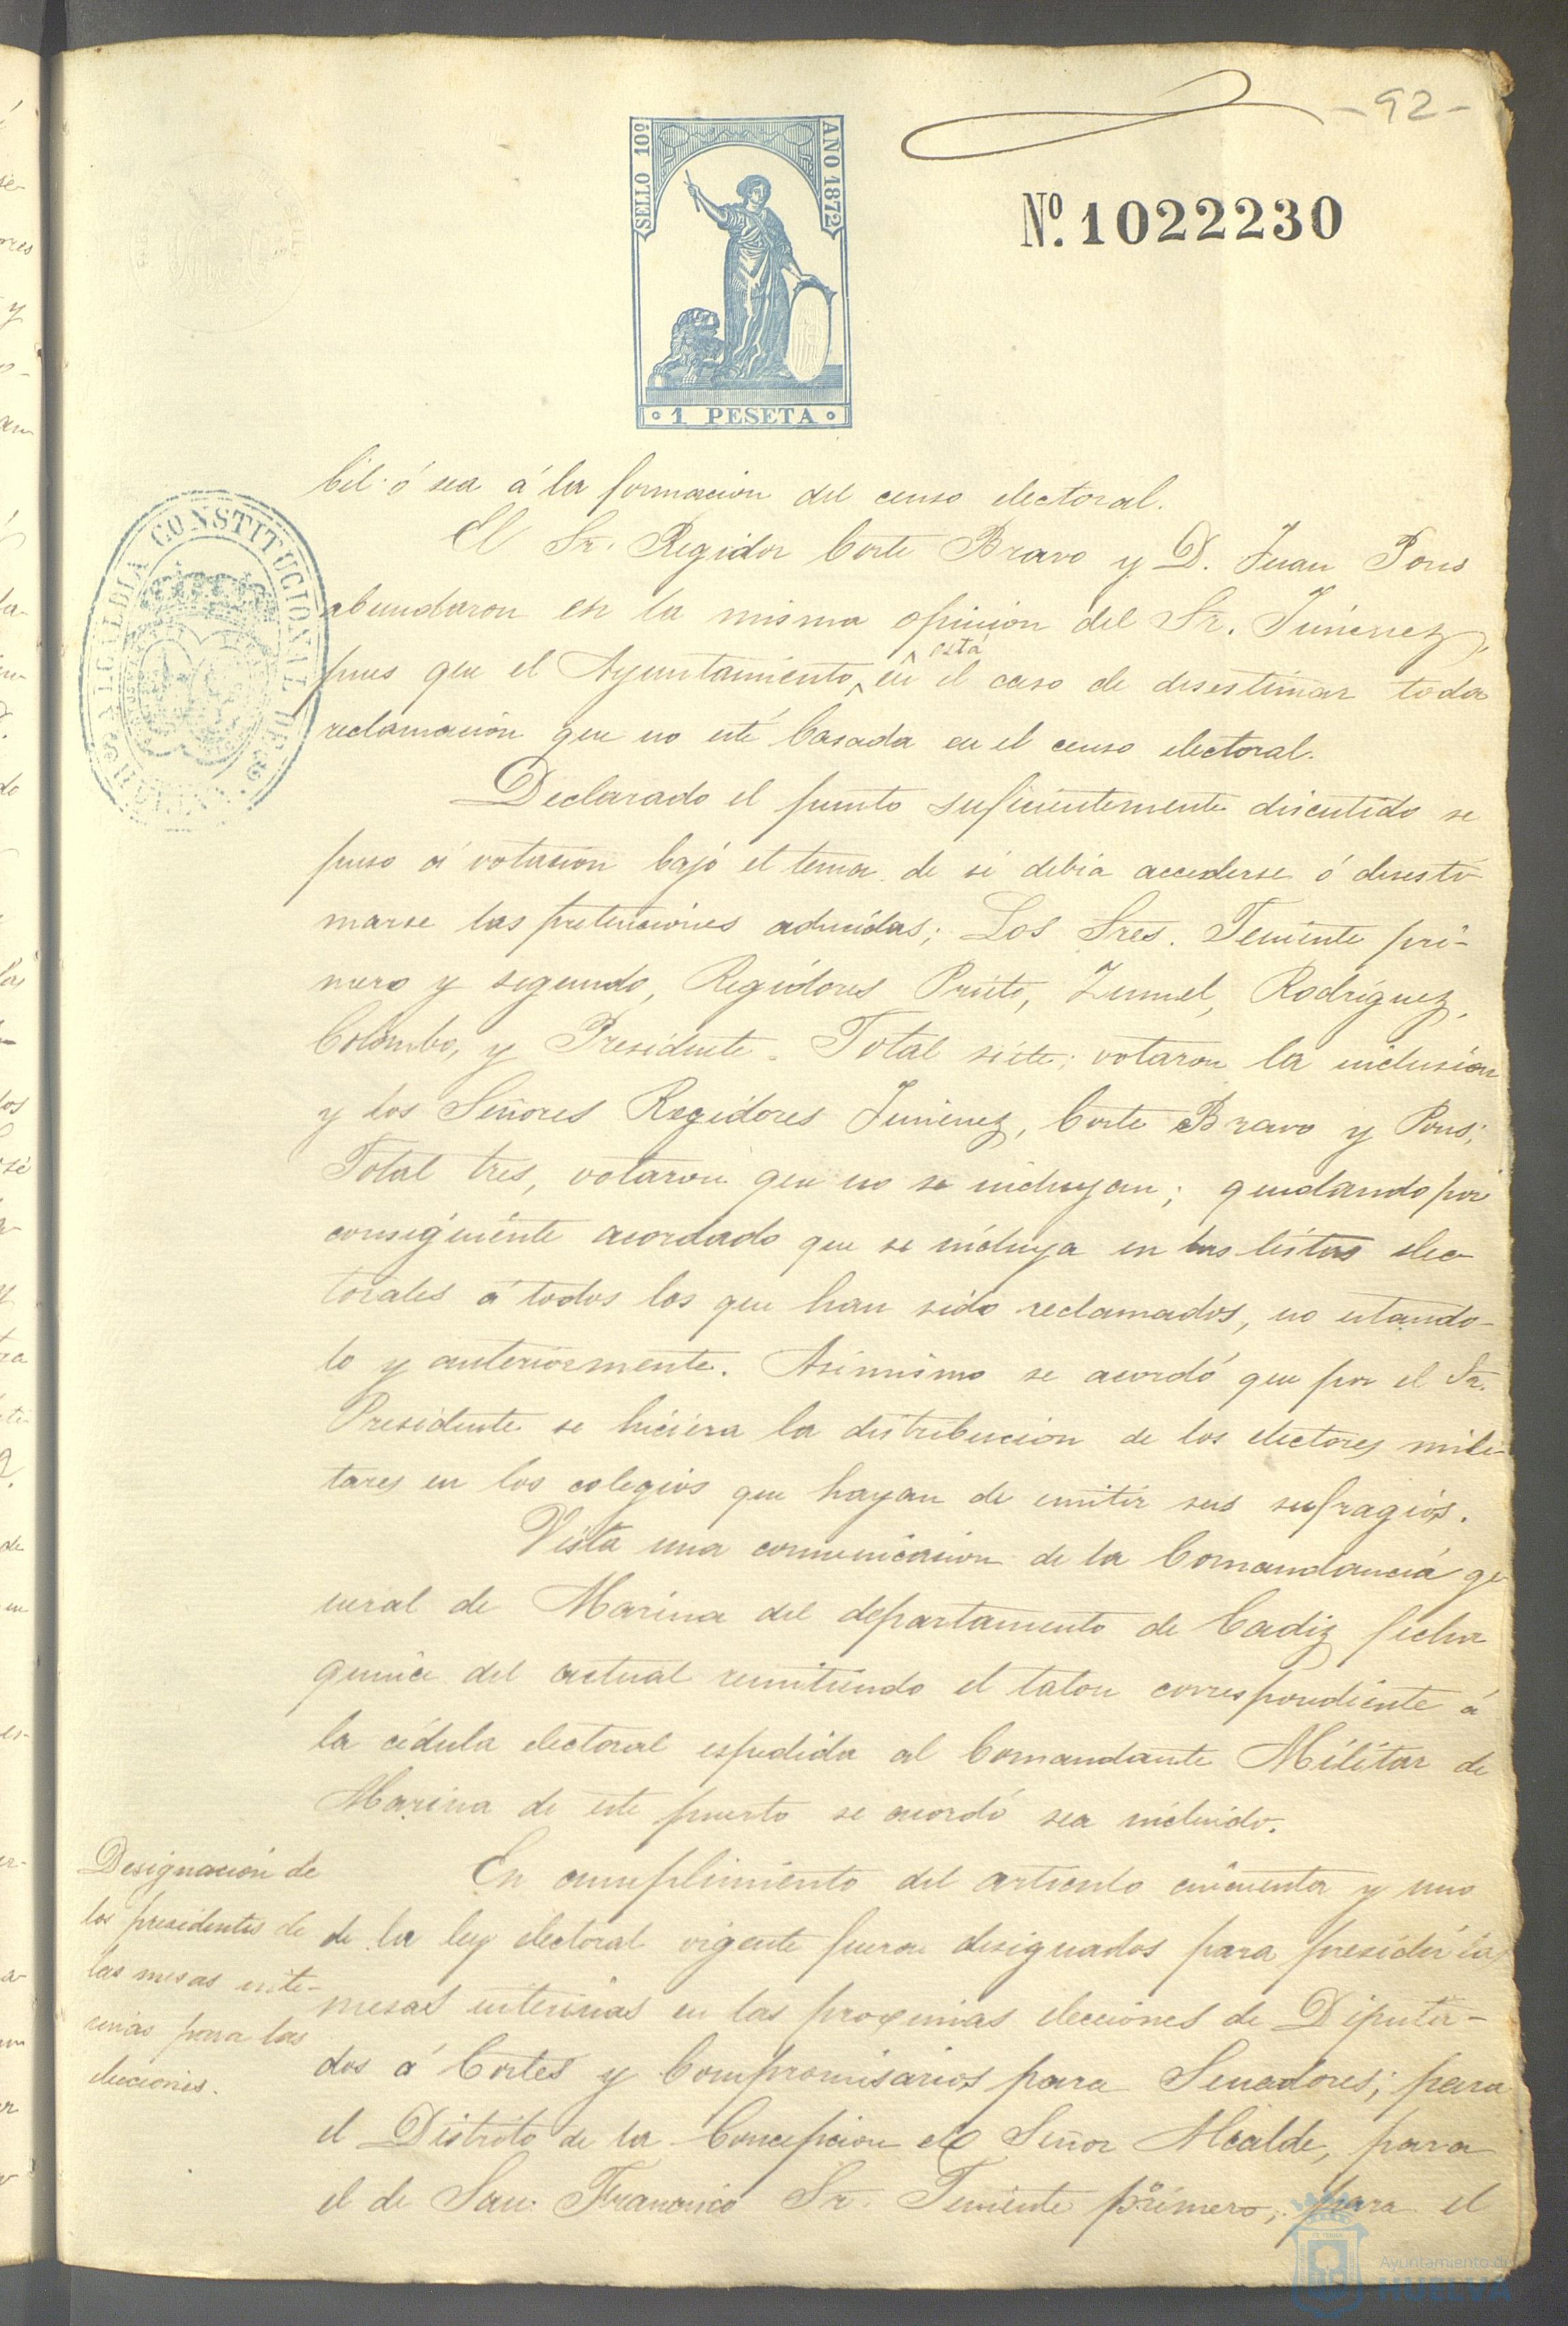 -92-
SELLO 10º
AÑO 1872
Nº. 1022230
1 PESETA
ALCALDIA CONSTITUCIONAL DE
HUELVA
bil ó sea á la formacion del censo electoral.
El Sr. Regidor Corte Bravo y D. Juan Pons
abundaron en la misma opinion del Sr. Jimenez,
pues que el Ayuntamiento está en el caso de desestimar toda
reclamación que no esté basada en el censo electoral.
Declarado el punto suficientemente discutido se
puso á votacion bajo el tema de si debia accederse ó desesti
marse las pretenciones aducidas; Los Sres. Teniente pri-
mero y segundo, Regidores Prieto, Zunuel, Rodriguez,
Colombo, y Presidente. Total siete; votaron la inclusion
y los Señores Regidores Jimenez, Corte Bravo y Pons;
Total tres, votaron que no se incluyan; quedando por
consiguiente acordado que se incluya en las listas elec
torales á todos los que han sido reclamados, no estando-
lo y anteriormente. Asimismo se acordó que por el Sr.
Presidente se hiciera la distribucion de los electores mili-
tares en los colegios que hayan de emitir sus sufragios.
Vista una comunicacion de la Comandancia ge
neral de Marina del departamento de Cadiz fecha
quince del actual remitiendo el talon correspondiente á
la cédula electoral espedida al Comandante Militar de
Marina de este puerto se acordó sea incluido.
Designacion de
los presidentes de
las mesas inte-
rinas para las
elecciones.
En cumplimiento del articulo cincuenta y uno
de la ley electoral vigente fueron designados para presidir las
mesas interinas en las proximas elecciones de Diputa-
dos á Cortes y Compromisarios para Senadores; para
el Distrito de la Concepcion el Señor Alcalde, para
el de San Francisco Sr. Teniente primero; para el
Ayuntamiento de
HUELVA